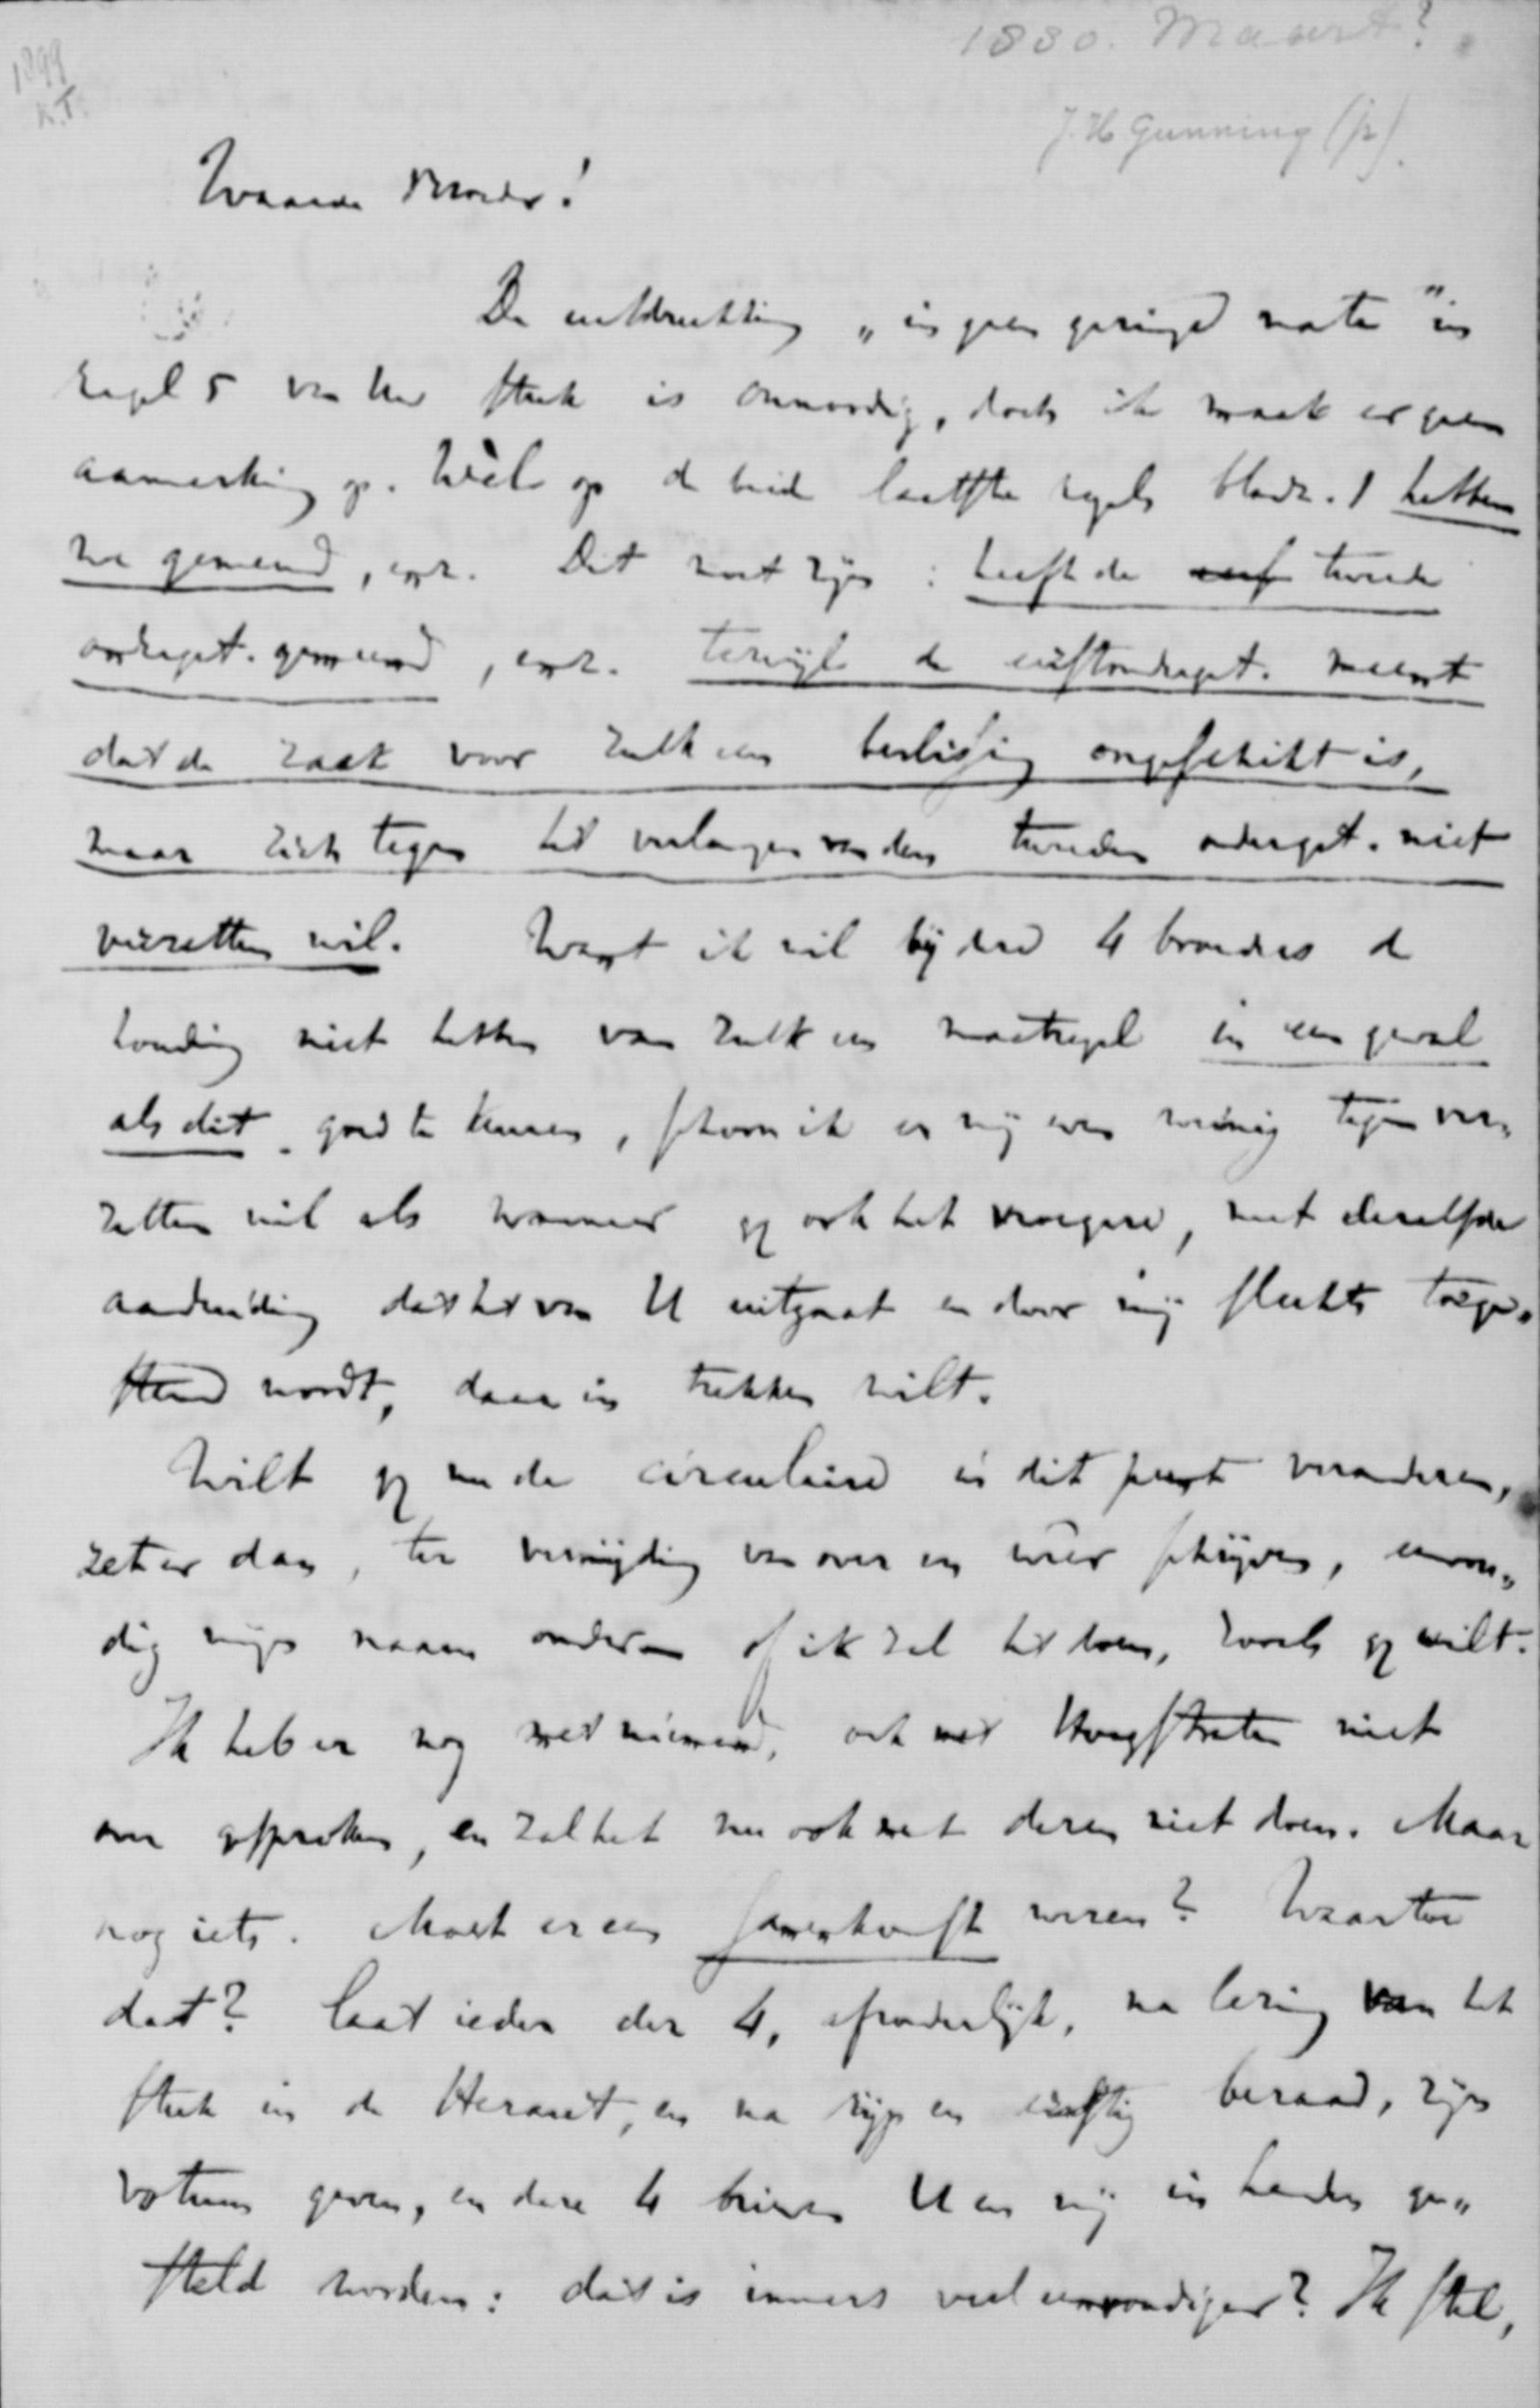 1880. Maart?
1899
K.T.
J. H Gunning (jr).
Waarde Broeder!
De uitdrukking „in geen geringe mate" in
regel 5 van het stuk is onnoodig, doch ik maak er geen
aanmerking op. Wèl op de beide laatste regels bladz. 1 hebben
we gemeend, enz. Dit moet zijn: heeft de tweede
onderget. gemeend, enz. terwijl de eerstonderget. meent
dat de zaak voor zulk een beslissing ongeschikt is,
maar zich tegen het verlangen van den tweeden onderget. niet
verzetten wil. Want ik wil bij deze 4 broeders de
houding niet hebben van zulk een maatregel in een geval
als dit goed te keuren, schoon ik er mij even weinig tegen ver„
zetten wil als wanneer gij ook het vroegere, met dezelfde
aanduiding dat het van U uitgaat en door mij slechts toege„
stemd wordt, daar in trekken wilt.
Wilt gij nu de circulaire in dit punt veranderen,
zet er dan, ter vermijding van over en weer schrijven, eenvou„
dig mijn naam onder of ik zal het doen, zooals gij wilt.
Ik heb er nog met niemand, ook met Hoogstraten niet
over gesproken, en zal het nu ook met dezen niet doen. Maar
nog iets. Moet er een samenkomst wezen? Waartoe
dat? Laat ieder der 4, afzonderlijk, na lezing van het
stuk in de Heraut, en na rijp en ernstig beraad, zijn
votum geven, en deze 4 brieven U en mij in handen ge„
steld worden: dat is immers veel eenvoudiger? Ik stel,